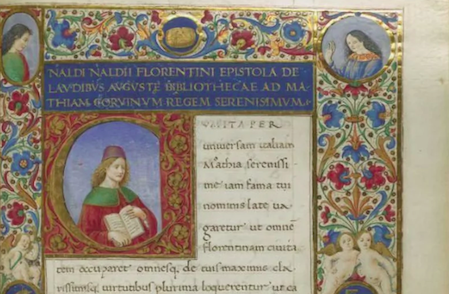 NALDI NALDII FLORENTINI EPISTOLA DE
LAVDIBVS AVGVSTE BIBLIOTHECAE AD MA
THIAM CORVINVM REGEM SERENISIMVM
VM ITA PER
universam italiam
Mathia serenissi
me iam fama tui
nominis late va
garetur ut omnē
florentinam civita
tem occuparet omnesq; de tuis maximis cla
rissimisq; virtutibus plurima loquerentur ut ea